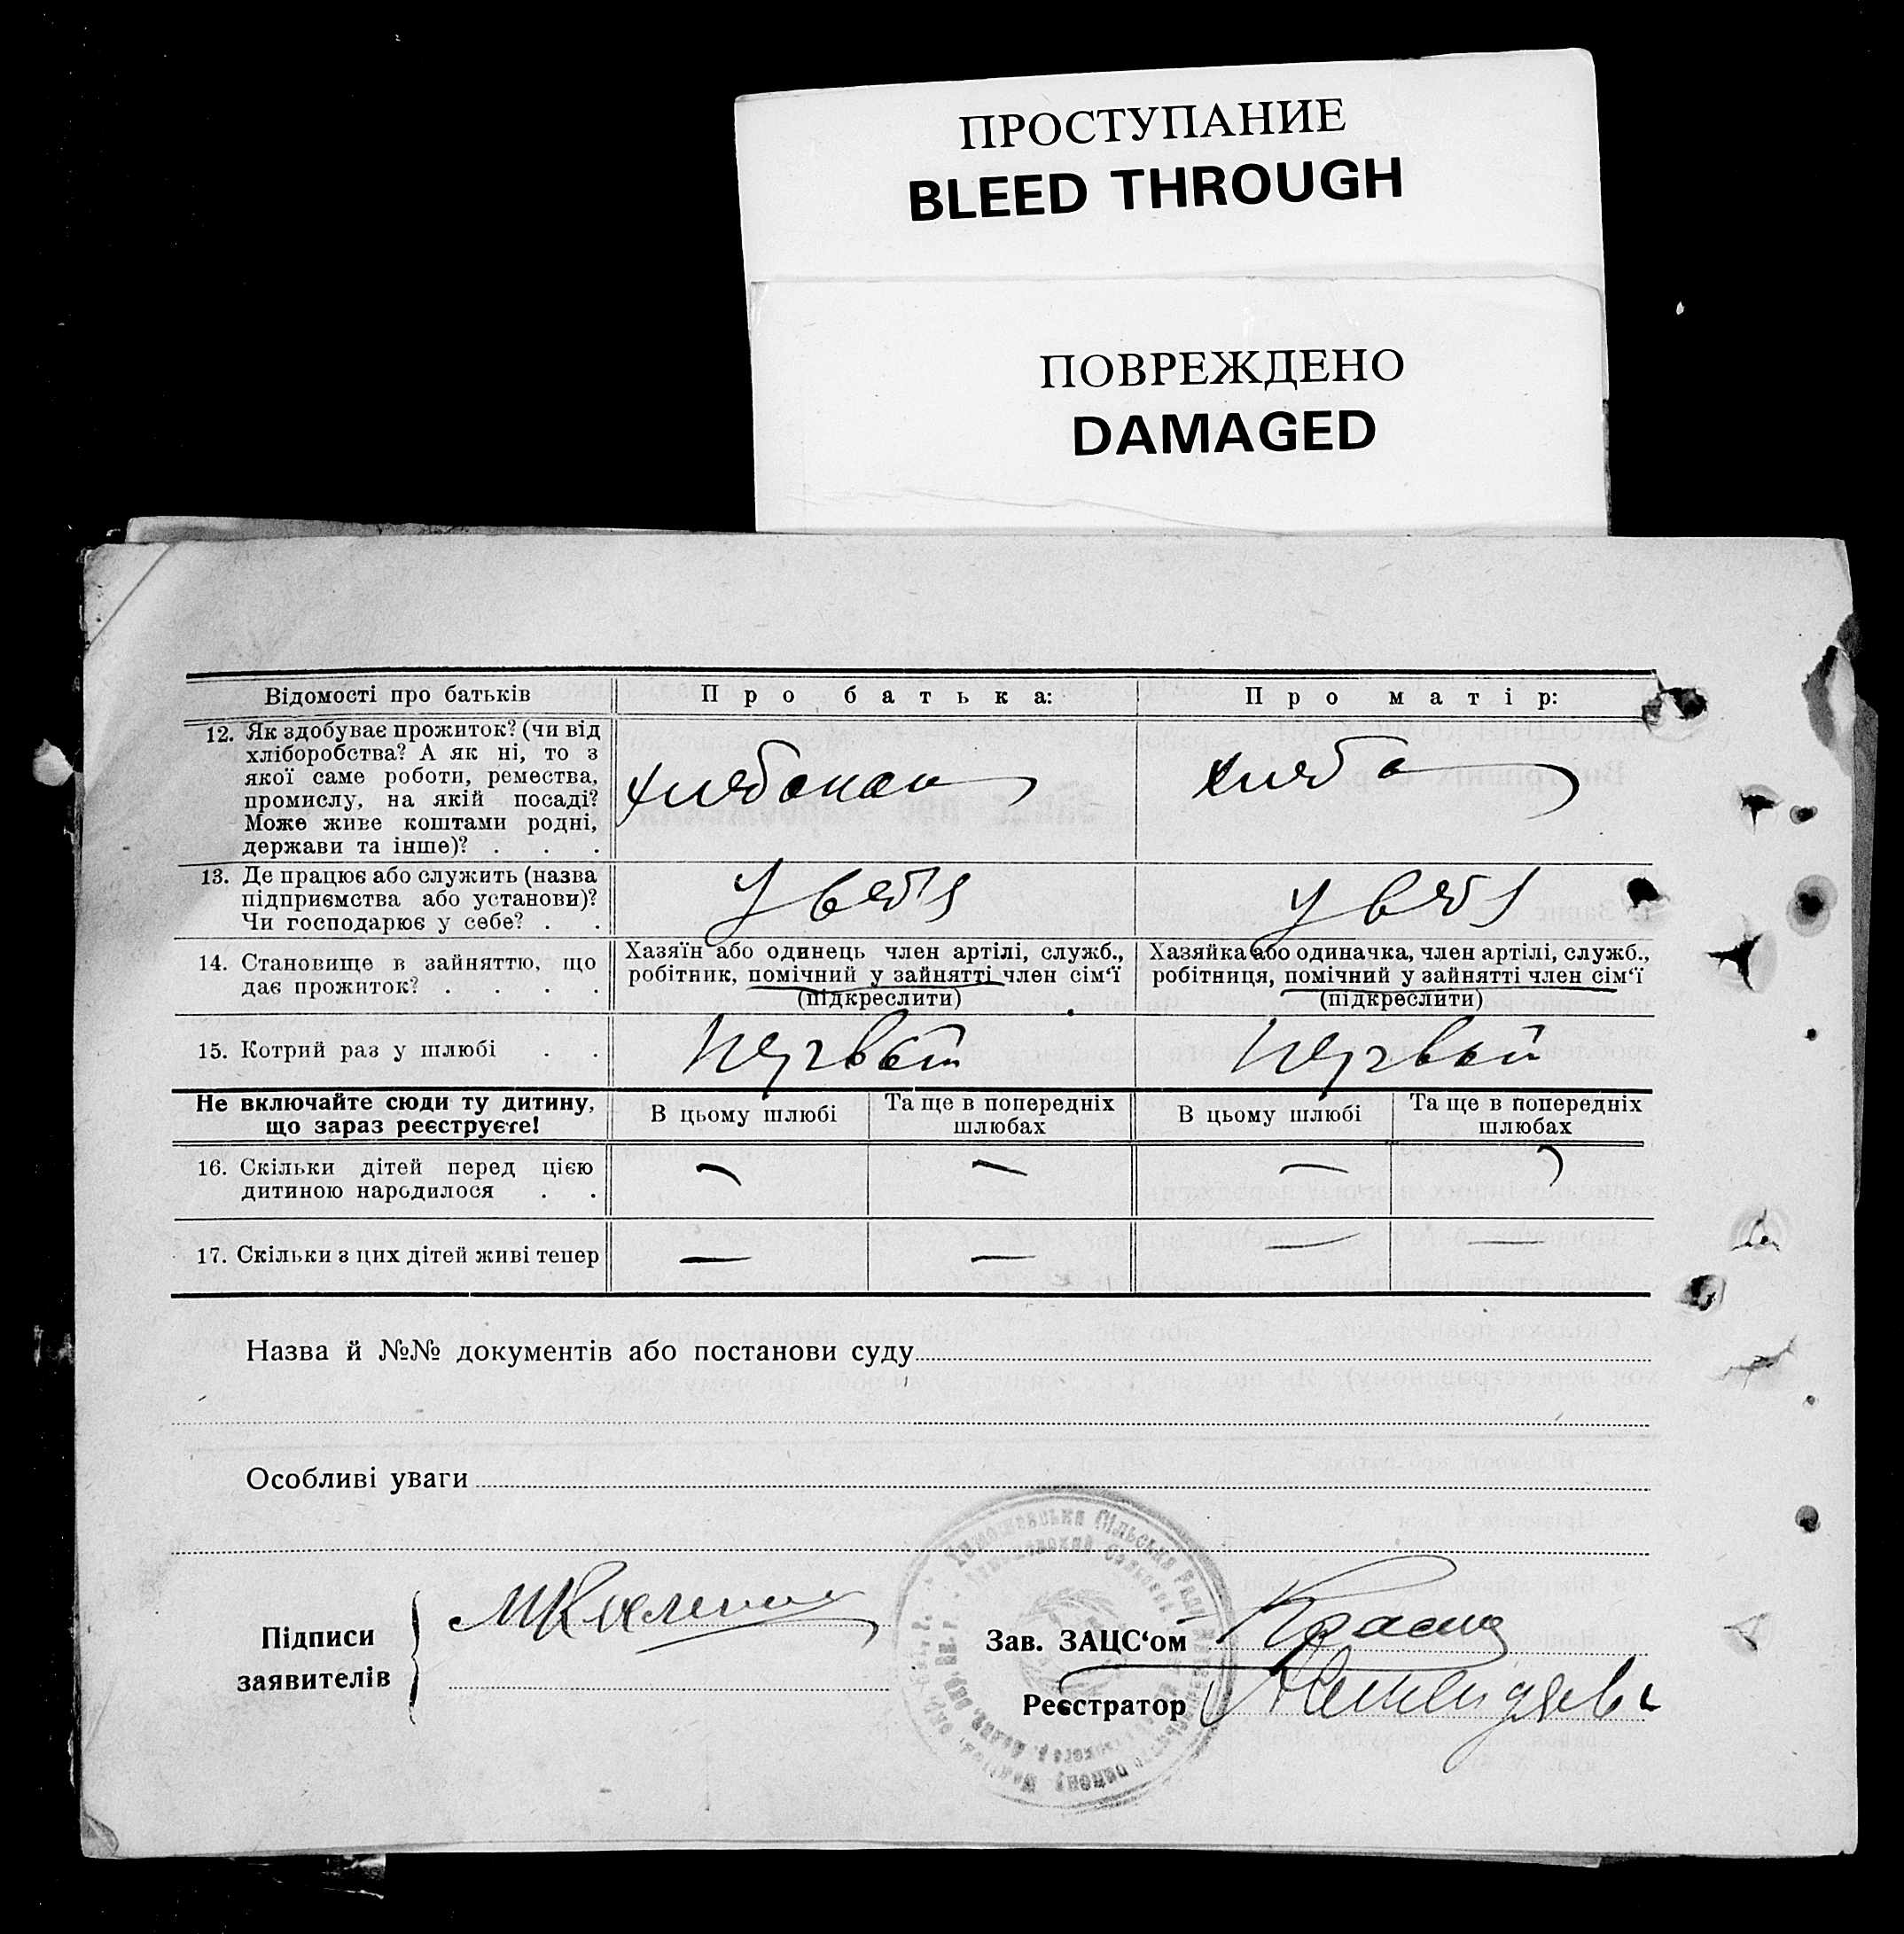 ПРОСТУПАНИЕ
BLEED THROUGH
ПОВРЕЖДЕНО
DAMAGED
Відомості про батьків
Про батька:
Про матір:
12. Як здобуває прожиток? (чи від
хліборобства? А як ні, то з
якої саме роботи, ремества,
промислу, на якій посаді?
Може живе коштами родні,
держави та інше)? . . .
13. Де працює або служить (назва
підприємства або установи)?
Чи господарює у себе? . .
у себя
у себя
14. Становище в зайняттю, що
дає прожиток? . . . .
Хазяїн або одинець член артілі, служб.,
робітник, помічний у зайнятті член сім‘ї
(підкреслити)
Хазяйка або одиначка, член артілі, служб.,
робітниця, помічний у зайнятті член сім‘ї
(підкреслити)
15. Котрий раз у шлюбі . .
Первый
Первый
Не включайте сюди ту дитину,
що зараз реєструєте!
В цьому шлюбі
Та ще в попередніх
шлюбах
В цьому шлюбі
Та ще в попередніх
шлюбах
16. Скільки дітей перед цією
дитиною народилося . .
— — — —
17. Скільки з цих дітей живі тепер
— — — —
Назва й №№ документів або постанови суду
Особливі уваги
Підписи
заявителів
Зав. ЗАЦС‘ом
Реєстратор